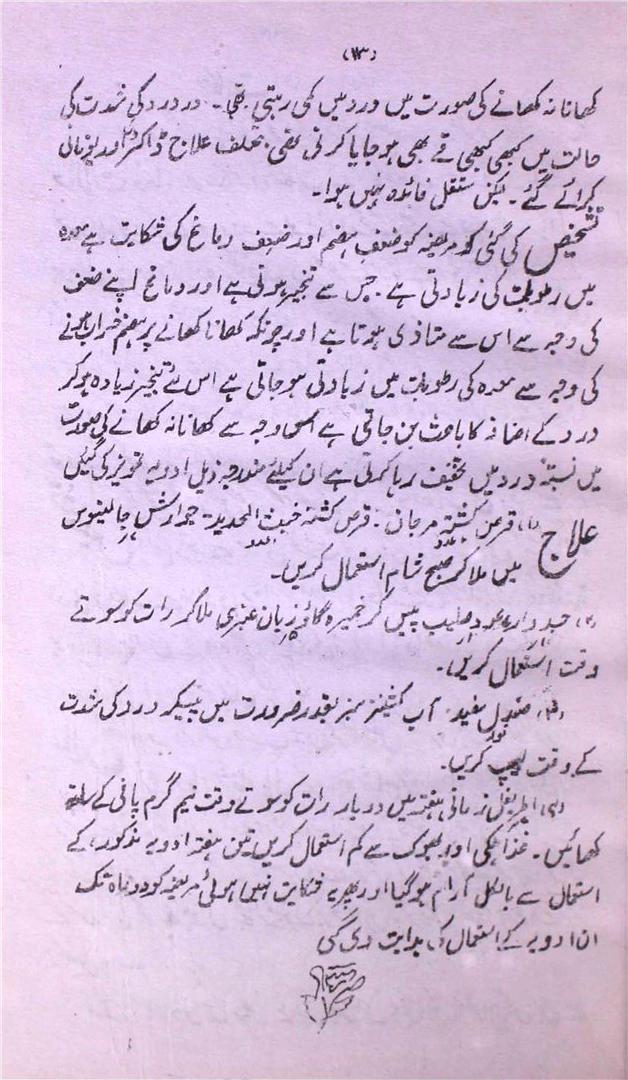 (۱۳)
کھانا نہ کھانے کی صورت میں درد میں کمی رہتی تھی۔ درد کی شدت کی
حالت میں کبھی کبھی قے بھی ہو جایا کرتی تھی۔ مختلف علاج ڈاکٹری اور یونانی
کرائے گئے۔ لیکن مستقل فائدہ نہیں ہوا۔
تشخیص کی گئی کہ مریضہ کو ضعف ہضم اور ضعف دماغ کی شکایت ہے معدہ
میں رطوبت کی زیادتی ہے۔ جس سے تبخیر ہوتی ہے اور دماغ اپنے ضعف
کی وجہ سے اس سے متاذی ہوتا ہے اور چونکہ کھانا کھانے پر ہضم خراب ہونے
کی وجہ سے معدہ کی رطوبت میں زیادتی ہو جاتی ہے اس سے تبخیر زیادہ ہو کر
درد کے اضافہ کا باعث بن جاتی ہے اس وجہ سے کھانا نہ کھانے کی صورت
میں نسبتہً درد میں تخفیف رہا کرتی ہے ان کیلئے مندرجہ ذیل ادویہ تجویز کی گئیں
علاج (۱) قرص کشتہ مرجان۔ قرص کشتہ خبث الحدید۔ جوارش جالینوس
میں ملا کر صبح شام استعمال کریں۔
(۲) جدوار، عود صلیب پیس کر خمیرہ گاؤزبان عنبری ملا کر رات کو سوتے
وقت استعمال کریں۔
(۳) صندل سفید۔ آب کشنیز سبز بقدر ضرورت میں پیسکر درد کی شدت
کے وقت لیپ کریں۔
(۴) اطریفل زمانی ہفتہ میں دو بار رات کو سوتے وقت نیم گرم پانی کے ساتھ
کھائیں۔ غذا ہلکی اور بھوک سے کم استعمال کریں تین ہفتہ ادویہ مذکورہ کے
استعمال سے بالکل آرام ہو گیا اور پھر یہ شکایت نہیں ہوئی مریضہ کو دو ماہ تک
ان ادویہ کے استعمال کی ہدایت دی گی